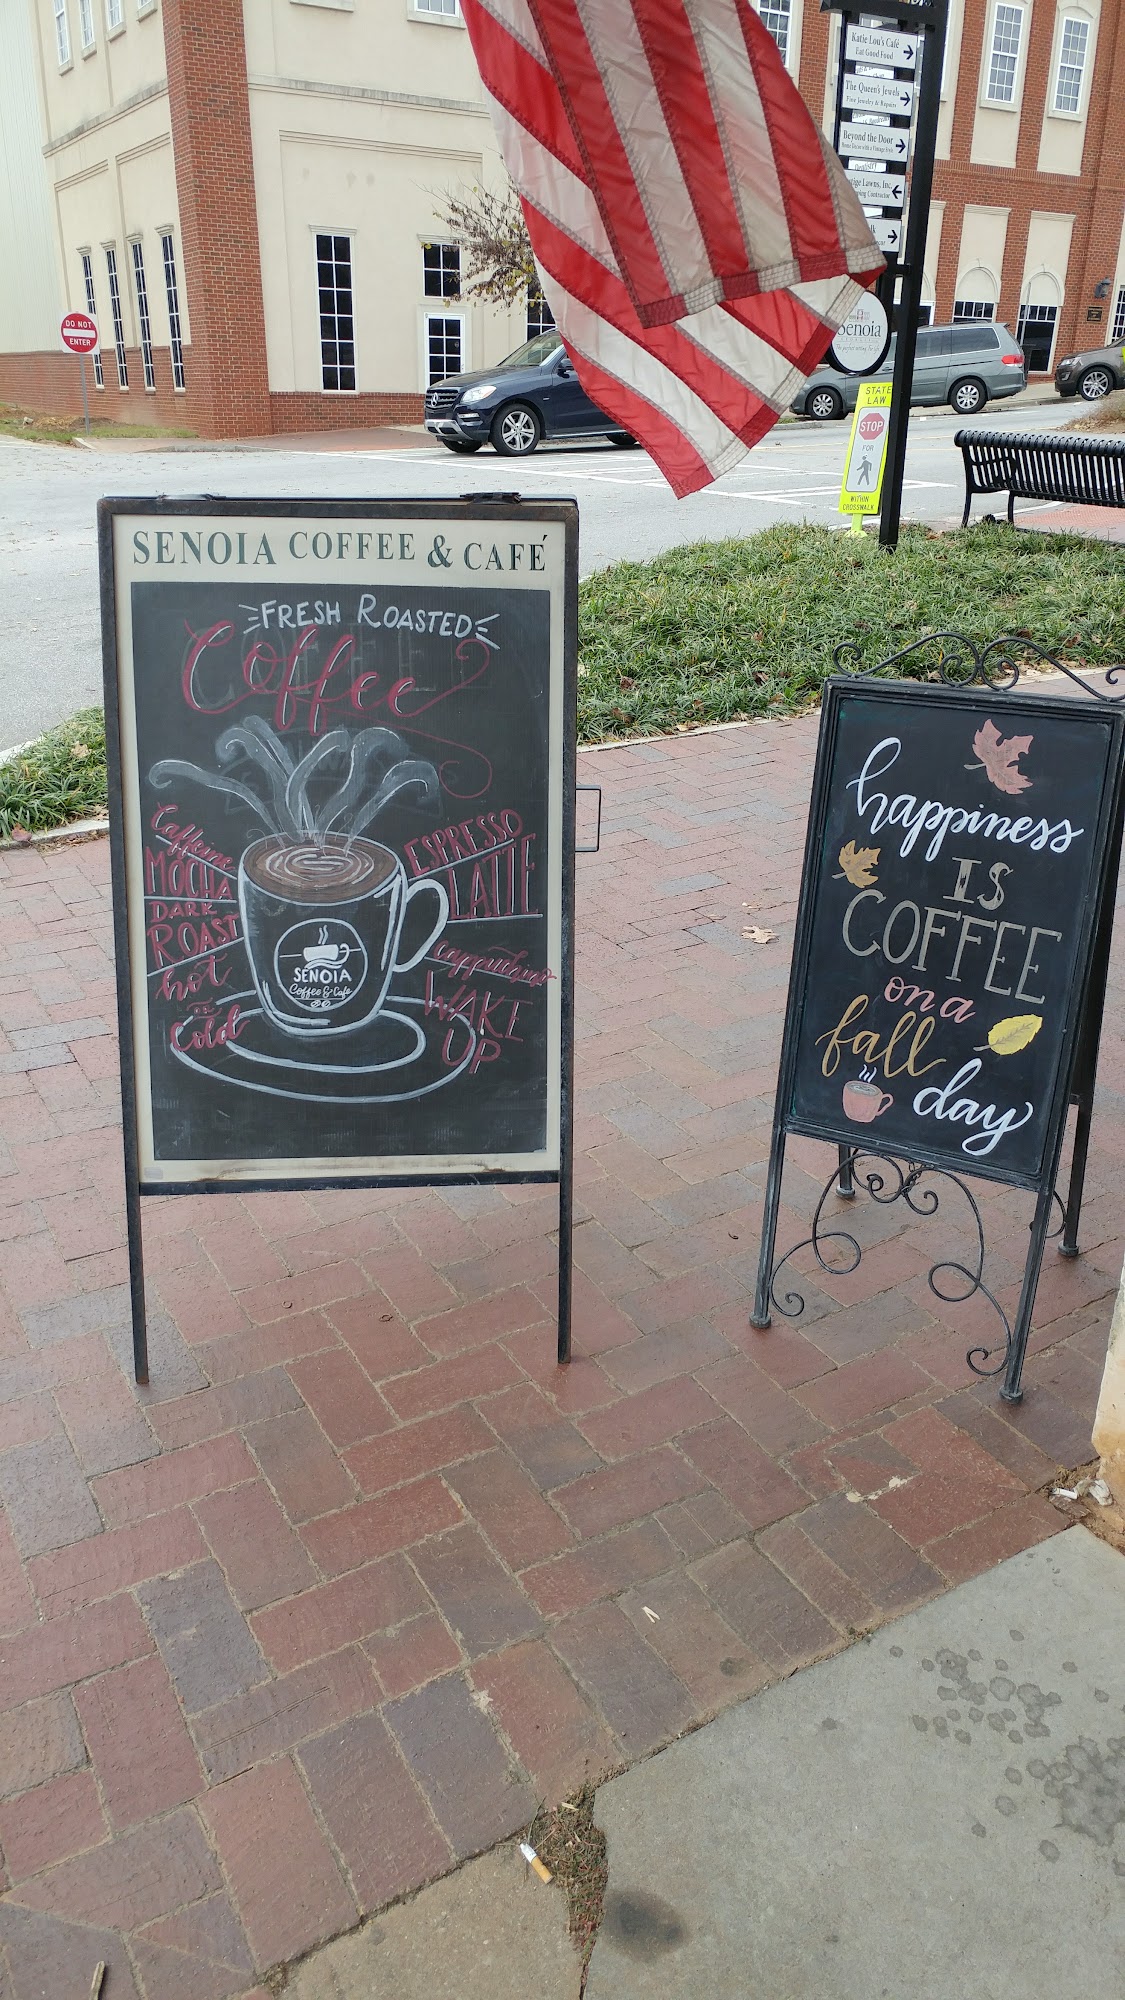 Katie Lou's Café
Eat Good Food
The Queen's Jewels
Fine Jewelry & Repairs
Beyond the Door
Home Decor with a Vintage Style
Lawns, Inc.
Senoia
DO NOT
ENTER
STATE
LAW
STOP
FOR
WITHIN
CROSSWALK
SENOIA COFFEE & CAFÉ
FRESH ROASTED
Coffee
Caffeine
MOCHA
DARK
ROAST
hot
or
Cold
SENOIA
Coffee & Cafe
ESPRESSO
LATTE
Cappuccino
WAKE
UP
happiness
IS
COFFEE
on a
fall
day